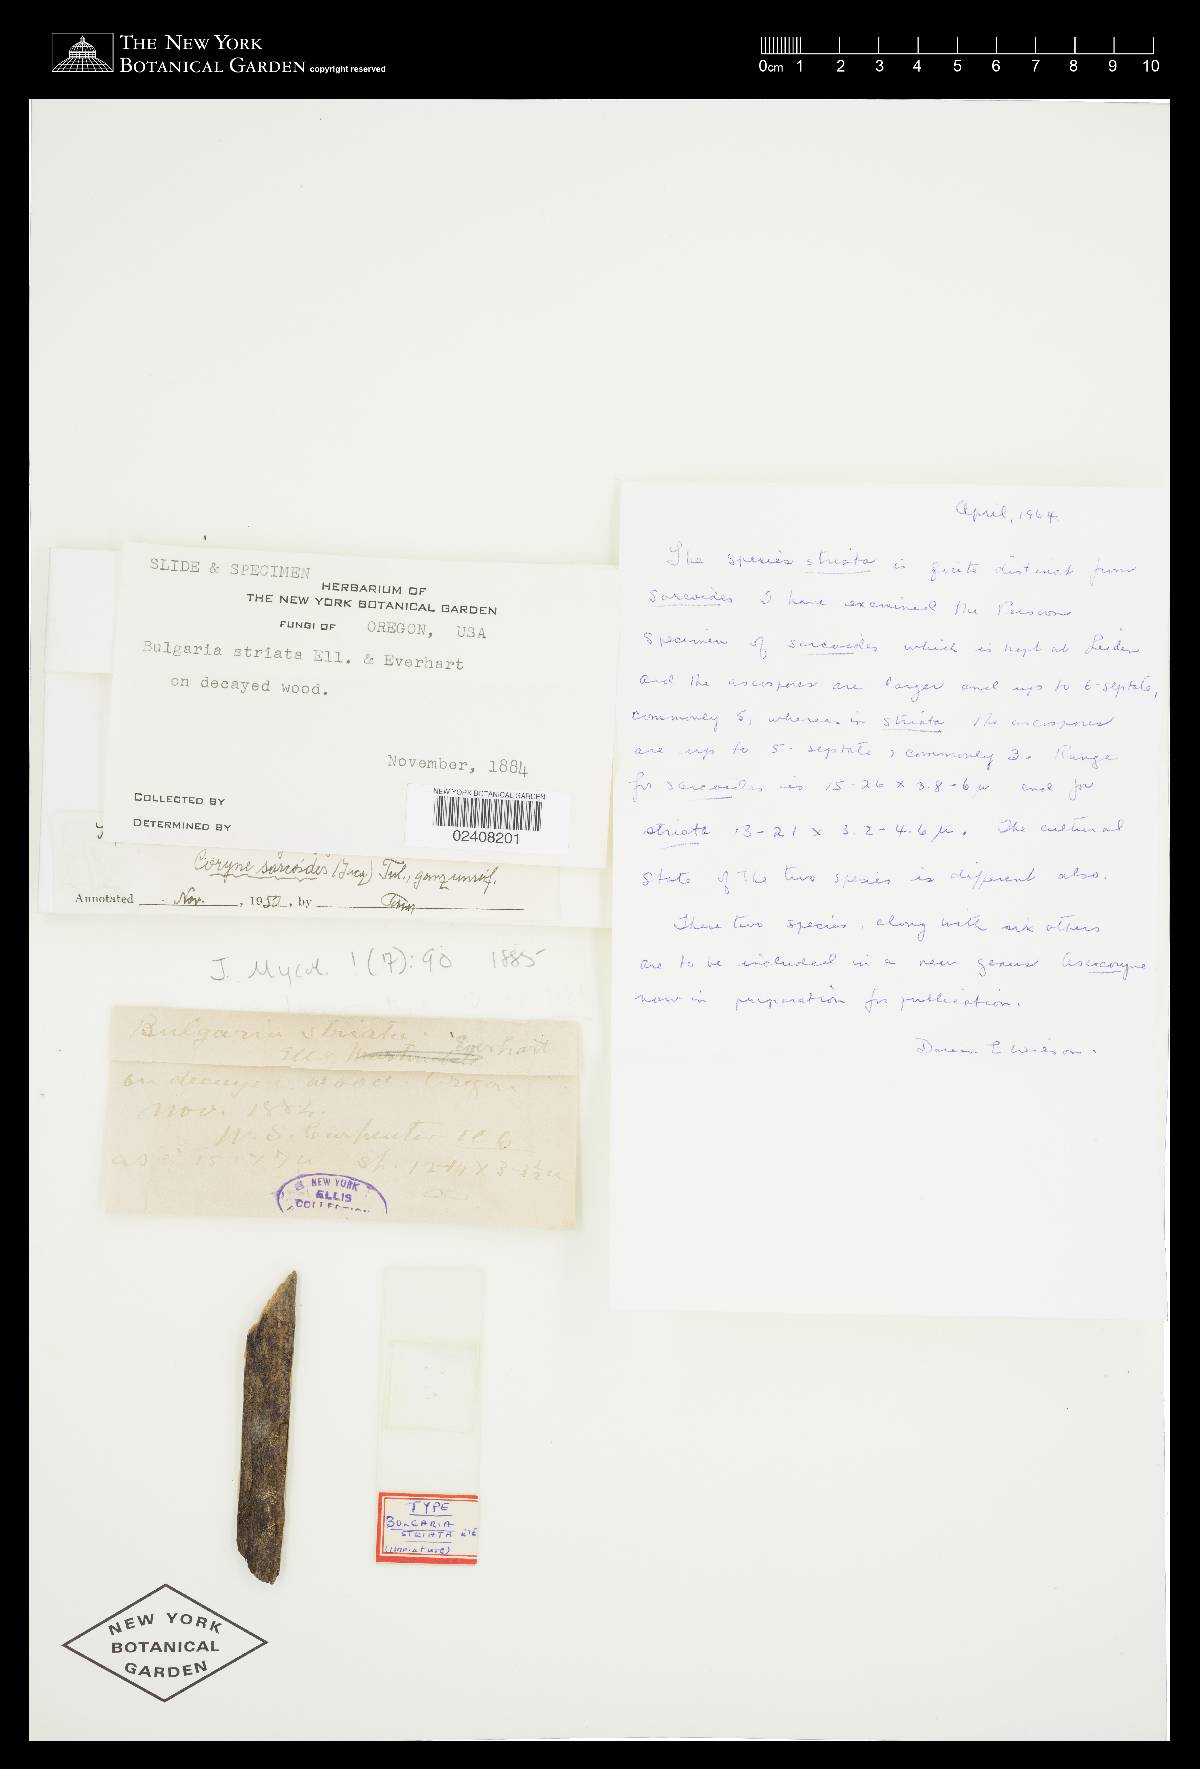 THE NEW YORK
BOTANICAL GARDEN copyright reserved
0cm 1 2 3 4 5 6 7 8 9 10
SLIDE & SPECIMEN
HERBARIUM OF
THE NEW YORK BOTANICAL GARDEN
FUNGI OF OREGON, USA
Bulgaria striata Ell. & Everhart
on decayed wood.
November, 1884
COLLECTED BY
DETERMINED BY
NEW YORK BOTANICAL GARDEN
02408201
Coryne sarcoides (Jacq) Tul., ganz unreif.
Annotated Nov., 1950, by
J. Mycol. 1(7): 90 1885
Bulgaria striata
Ell & Everhart
on decayed wood. Oregon
Nov. 1884.
W. S. Carpenter
NEW YORK
ELLIS
COLLECTION
TYPE
BULGARIA
STRIATA E&E
(immature)
NEW YORK
BOTANICAL
GARDEN
April, 1964
The species striata is quite distinct from
sarcoides I have examined the Persoon
specimen of sarcoides which is kept at Leiden
and the ascospores are larger and up to 6-septate,
commonly 5, whereas in striata the ascospores
are up to 5-septate, commonly 3. Range
for sarcoides is 15-26 × 3.8-6 µ and for
striata 13-21 × 3.2-4.6 µ. The cultural
state of the two species is different also.
These two species, along with six others
are to be included in a new genus Ascocoryne
now in preparation for publication.
Doreen E Wilson.